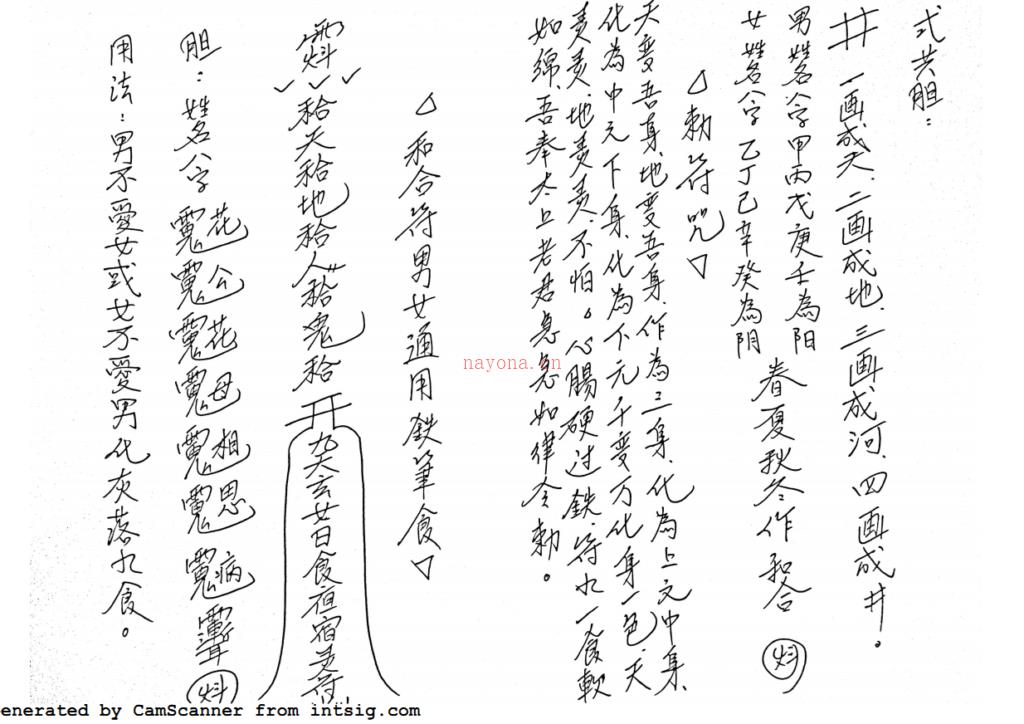 式共胆：
井 一画成天、二画成地、三画成河、四画成井。
男姓名八字甲丙戊庚壬為阳
女姓名八字乙丁己辛癸為阴
春夏秋冬作和合
△勅符咒▽
天变吾身、地变吾身、作為三身、化為上元中身、
化為中元下身、化為下元、千变万化身一色、天
灵灵、地灵灵、不怕。心腸硬过鉄、符水一食軟
如綿、吾奉太上老君急急如律令勅。
△和合符男女通用鉄筆食▽
和天和地和人和鬼和
九天玄女日食夜宿灵符
胆：姓名八字 花公花母相思病
用法：男不愛女或女不愛男化灰落水食。
nayona.cn
enerated by CamScanner from intsig.com